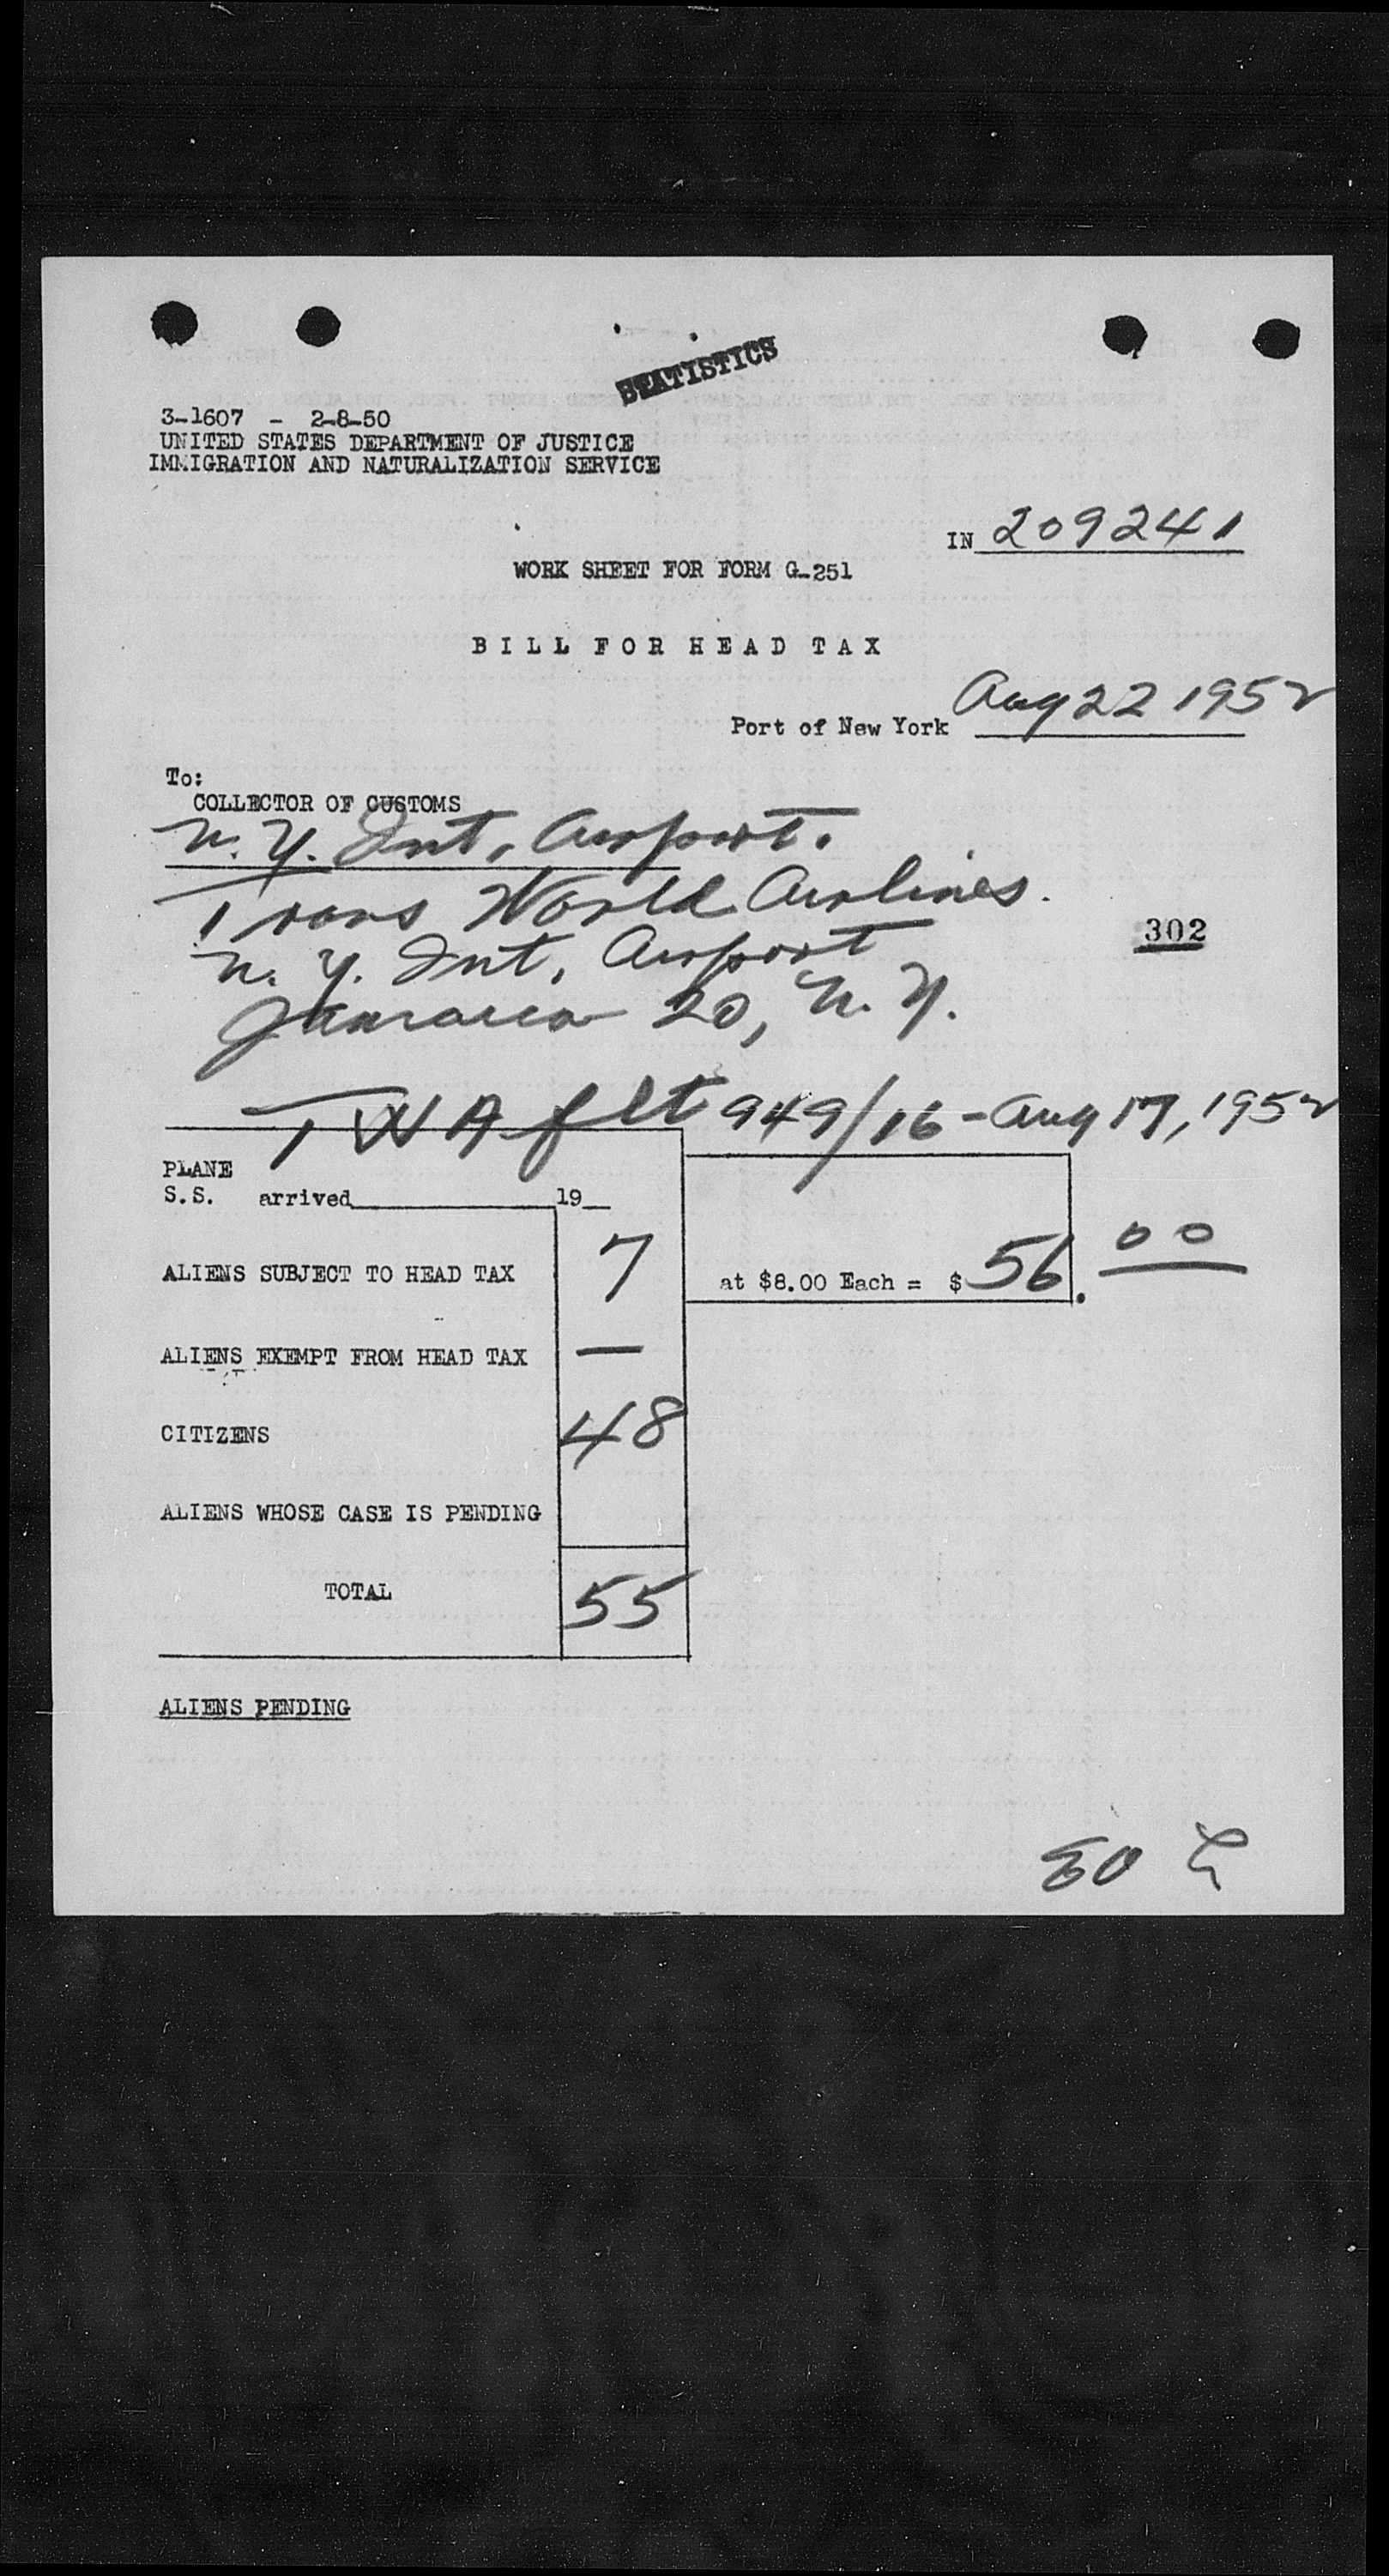 STATISTICS
3-1607 - 2-8-50
UNITED STATES DEPARTMENT OF JUSTICE
IMMIGRATION AND NATURALIZATION SERVICE
IN 209241
WORK SHEET FOR FORM G-251
BILL FOR HEAD TAX
Port of New York Aug 22 1952
To:
COLLECTOR OF CUSTOMS
N.Y. Int. Airport.
Trans World Airlines.
N.Y. Int. Airport
302
Jamaica 20, N.Y.
TWA flt 949/16 - Aug 17, 1952
PLANE
S.S. arrived 19
ALIENS SUBJECT TO HEAD TAX 7 at $8.00 Each = $ 56.00
ALIENS EXEMPT FROM HEAD TAX —
CITIZENS 48
ALIENS WHOSE CASE IS PENDING
TOTAL 55
ALIENS PENDING